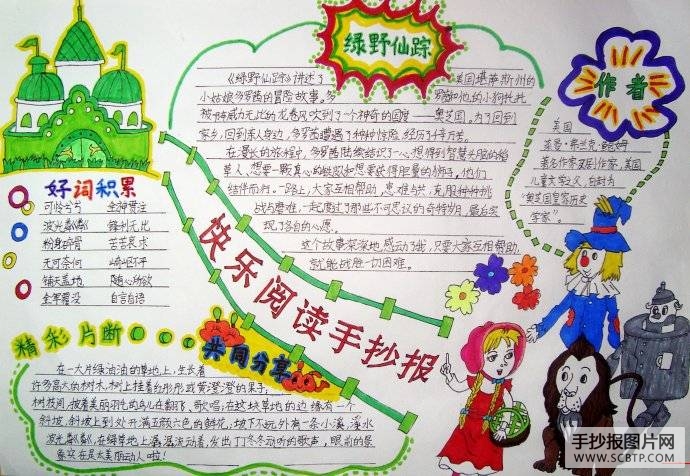 绿野仙踪
《绿野仙踪》讲述了美国堪萨斯州的
小姑娘多罗茜的冒险故事。多罗茜和她的小狗托托
被一阵威力无比的龙卷风吹到了一个神奇的国度——奥芝国。为了回到
家乡,回到亲人身边,多罗茜遭遇了种种惊险,经历了千辛万苦。
在漫长的旅程中,多罗茜陆续结识了一心想得到智慧头脑的稻
草人、想要一颗真心的铁皮人和想要获得胆量的狮子。他们
结伴而行。一路上,大家互相帮助,患难与共,克服种种挑
战与磨难,一起度过了那些不可思议的奇特岁月,最后实
现了各自的心愿。
这个故事深深地感动了我,只要大家互相帮助,
就能战胜一切困难。
作者
美国
莱曼·弗兰克·鲍姆
著名作家、戏剧作家,美国
儿童文学之父,自封为
“奥芝国皇家历史
学家”。
好词积累
可怜兮兮 全神贯注
波光粼粼 锋利无比
粉身碎骨 苦苦哀求
无可奈何 崎岖不平
铺天盖地 随心所欲
全军覆没 自言自语
快乐阅读手抄报
精彩片断
共同分享
在一大片绿油油的草地上,生长着
许多高大的树木,树上挂着红彤彤或黄澄澄的果子;
树枝间,披着美丽羽毛的鸟儿在翻飞、歌唱;在这块草地的边缘有一个
斜坡,斜坡上到处开满五颜六色的鲜花,坡下不远外有一条小溪,溪水
波光粼粼,在绿草地上潺潺流动着,发出丁冬丁冬动听的歌声,眼前的景
象实在是太美丽动人啦!
手抄报图片网
WWW.SCBTP.COM